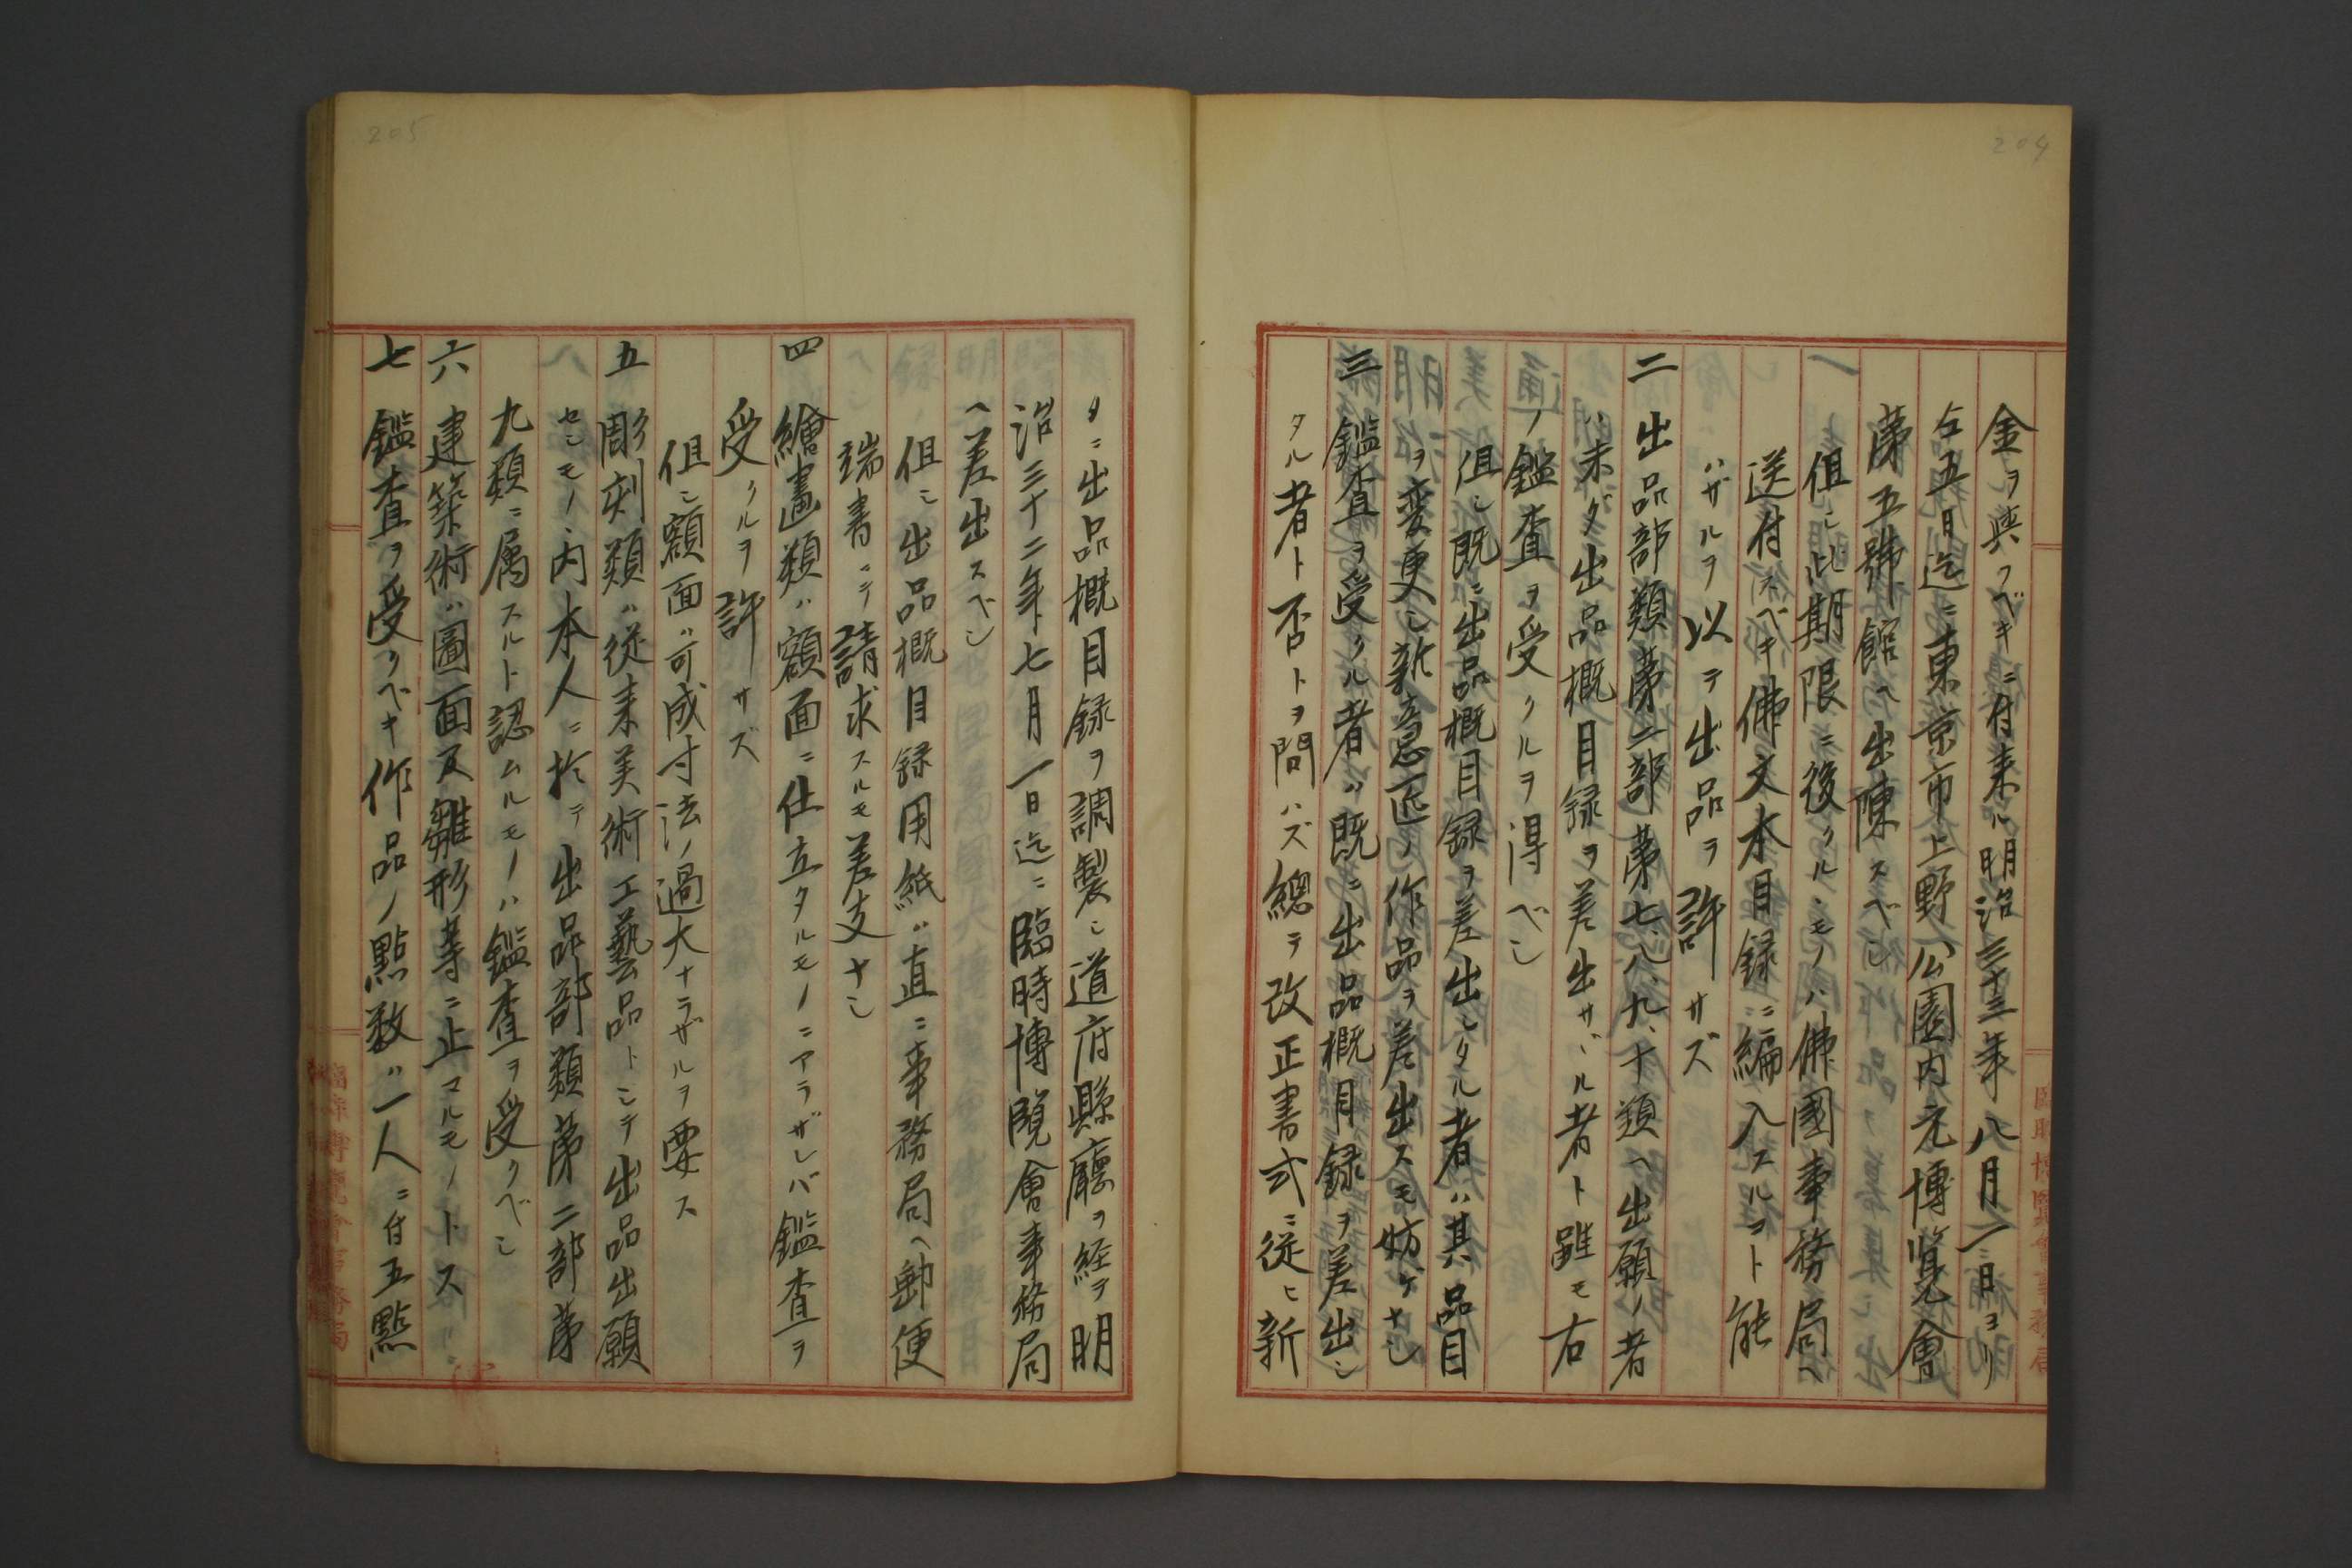 204
金ヲ與フベキニ付来ル明治三十三年八月一日ヨリ
仝五日迄ニ東京市上野公園内元博覧會
第五號館ヘ出陳スベシ
一 但シ此期限ニ後クルヽモノハ佛國事務局ヘ
送付スベキ佛文本目録ニ編入スルヿト能
ハザルヲ以テ出品ヲ許サズ
二 出品部類第二部第七、八、九、十類ヘ出願ノ者
ハ未ダ出品概目録ヲ差出サヾル者ト雖モ右
ノ鑑査ヲ受クルヲ得ベシ
但シ既ニ出品概目録ヲ差出シタル者ハ其品目
ヲ変更シ新意匠ノ作品ヲ差出スモ妨ゲナシ
三 鑑査ヲ受クル者ハ既ニ出品概目録ヲ差出シ
タル者ト否トヲ問ハズ總テ改正書式ニ従ヒ新
205
タニ出品概目録ヲ調製シ道府縣廳ヲ経テ明
治三十二年七月一日迄ニ臨時博覧會事務局
ヘ差出スベシ
但シ出品概目録用紙ハ直ニ事務局ヘ郵便
端書ニテ請求スルモ差支ナシ
四 繪畫類ハ額面ニ仕立タルモノニアラザレバ鑑査ヲ
受クルヲ許サズ
但シ額面ハ可成寸法ノ過大ナラザルヲ要ス
五 彫刻類ハ従来美術工藝品トシテ出品出願
センモノヽ内本人ニ於テ出品部類第二部第
九類ニ属スルト認ムルモノハ鑑査ヲ受クベシ
六 建築術ハ圖面及雛形等ニ止マルモノトス
七 鑑査ヲ受クベキ作品ノ點数ハ一人ニ付五點
臨時博覧會事務局